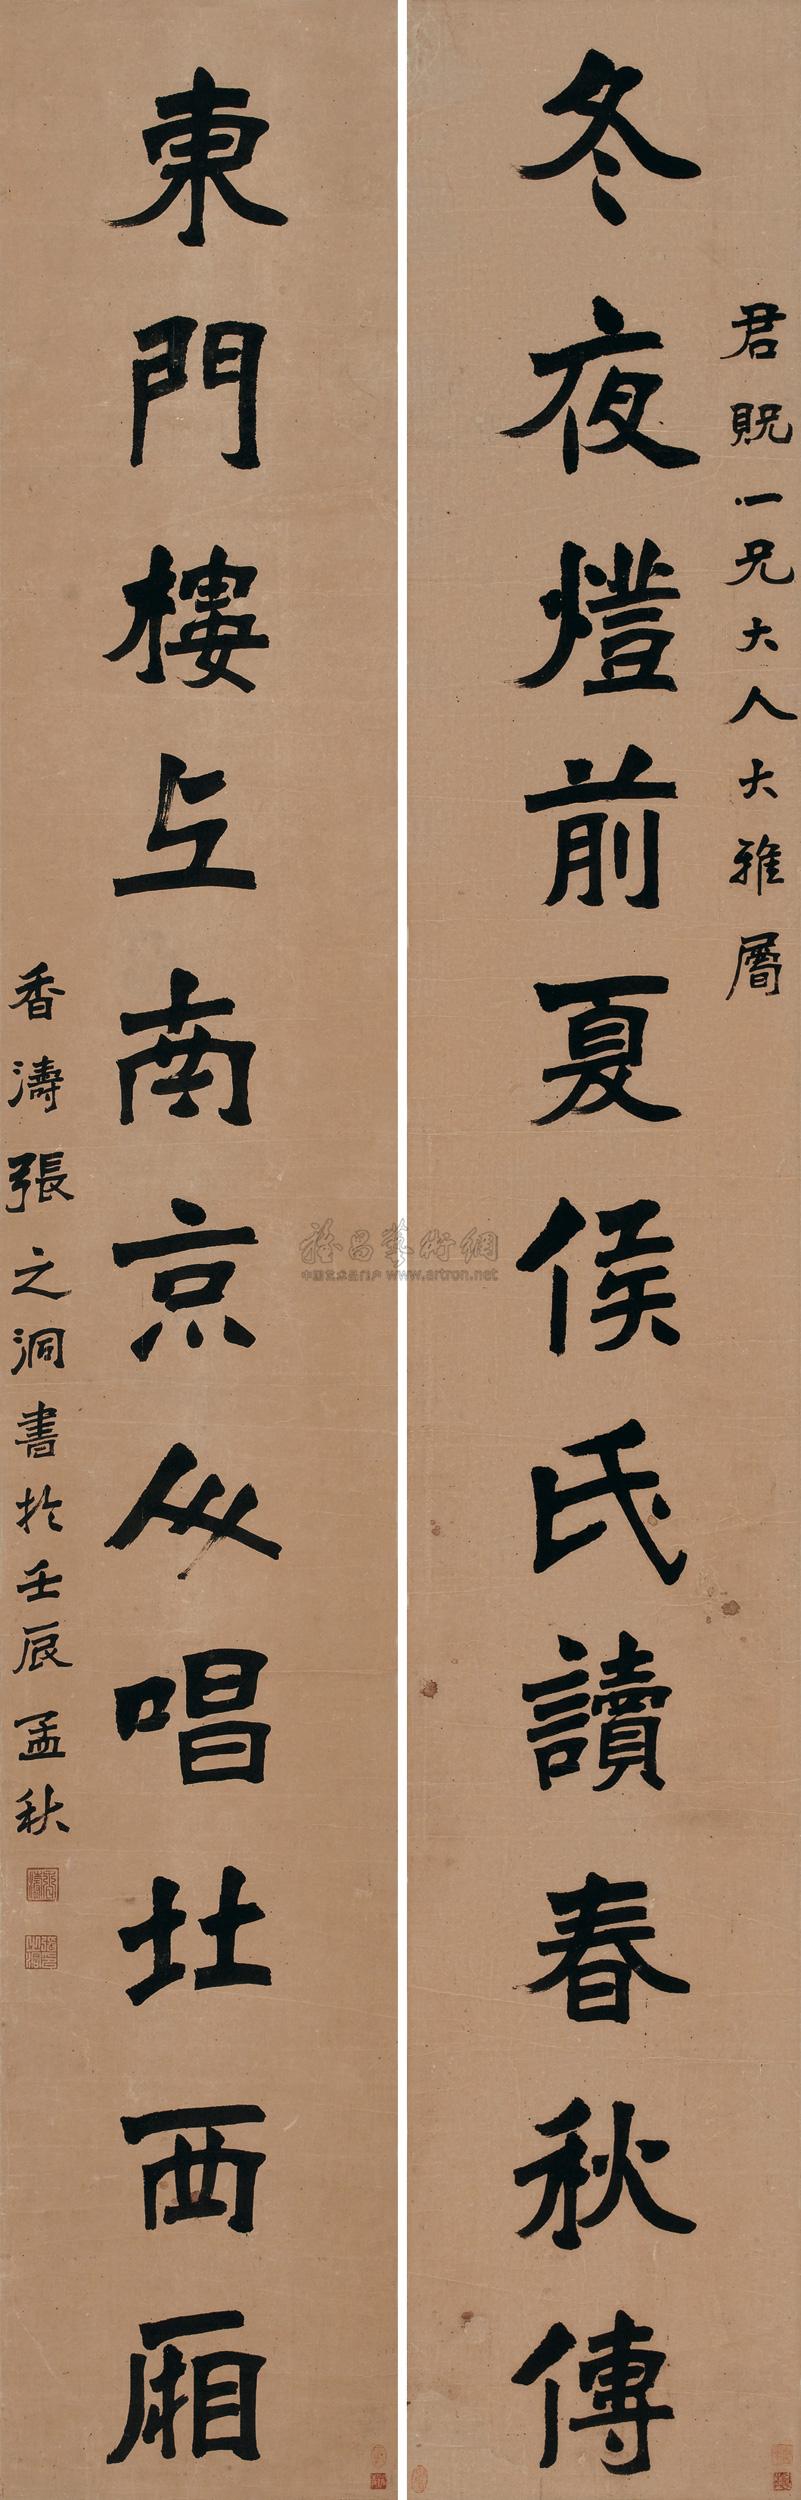 君貺一兄大人大雅屬
冬夜燈前夏侯氏讀春秋傳
東門樓上南京从唱北西厢
香濤張之洞書於壬辰孟秋
雅昌藝術網
中国艺术品门户 www.artron.net